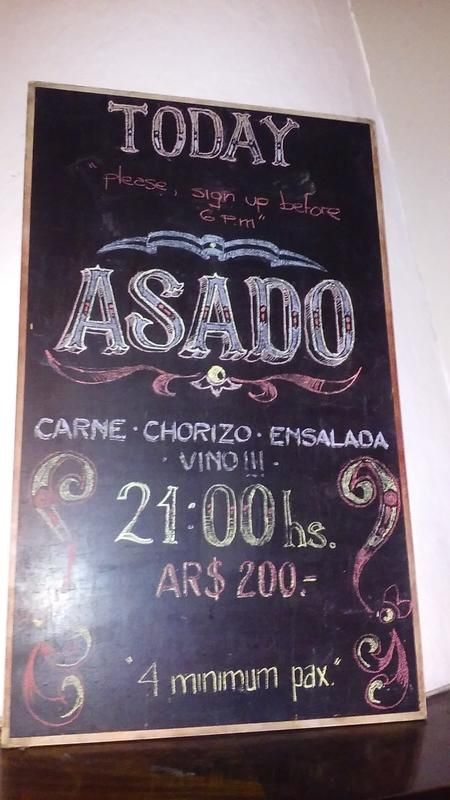 TODAY
"please, sign up before
6 P.m"
ASADO
CARNE · CHORIZO · ENSALADA
· VINO!!! ·
21:00 hs.
AR$ 200.-
"4 minimum pax."